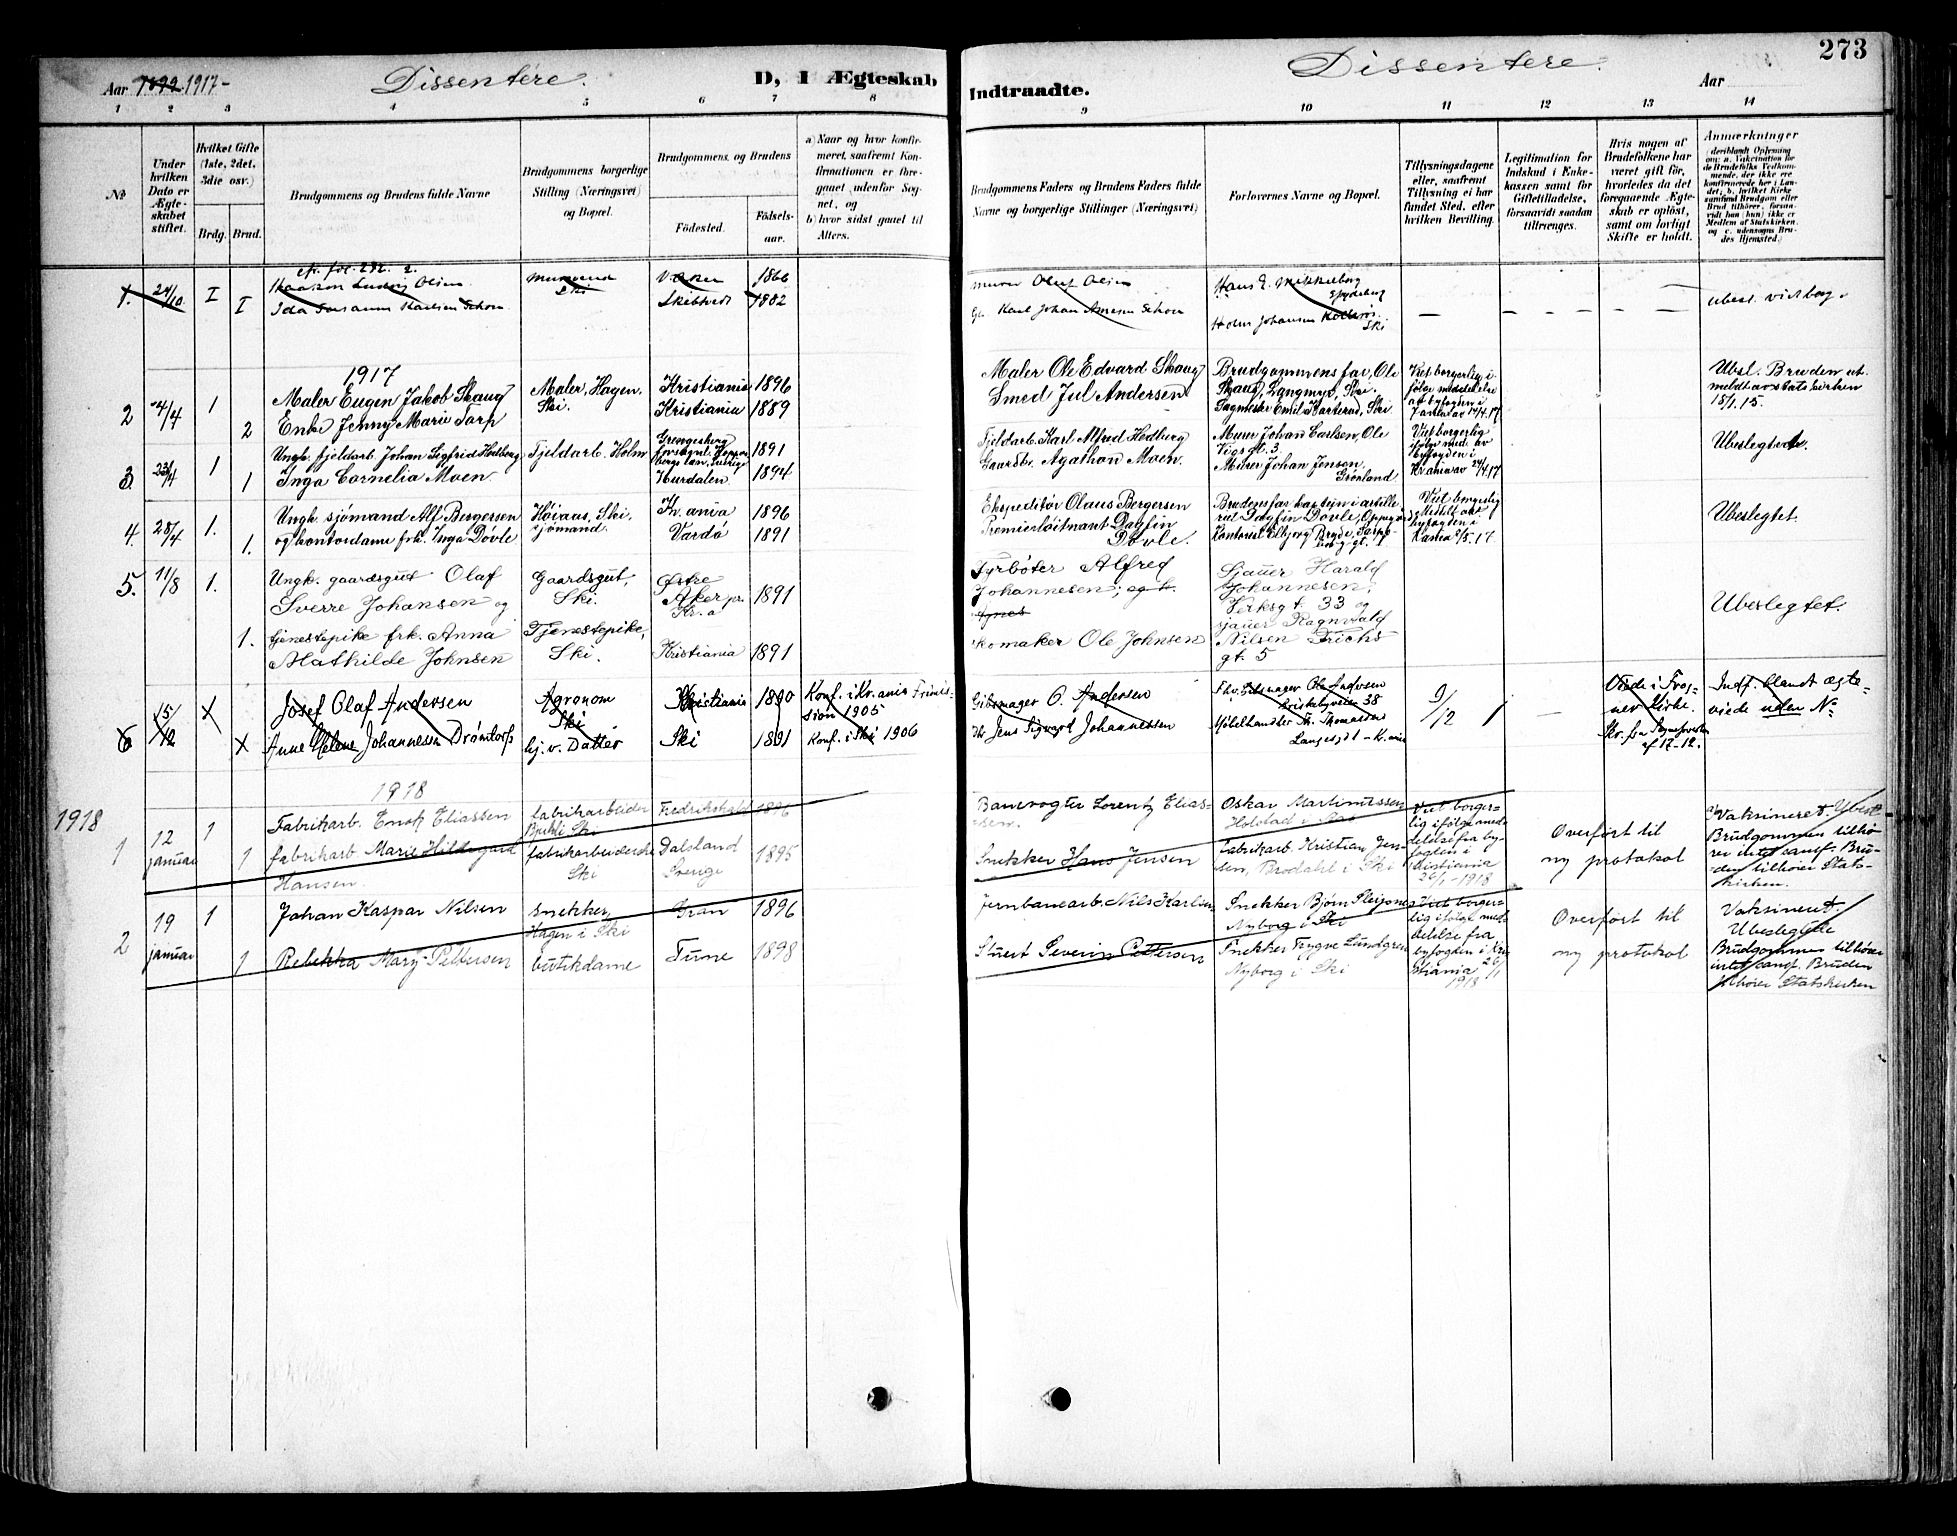 273
Aar 1892. 1917-
Dissentere.
D, I Ægteskab
Indtraadte.
Dissentere.
Aar
1 2 3 4 5 6 7 8
9 10 11 12 13 14
No
Under hvilken Dato er Ægteskabet stiftet.
Hvilket Gifte (1ste, 2det, 3die osv.)
Brdg. Brud.
Brudgommens og Brudens fulde Navne
Brudgommens borgerlige Stilling (Næringsvei) og Bopæl.
Brudgommens og Brudens
Fødested.
Fødselsaar.
a) Naar og hvor konfirmeret, saafremt Konfirmationen er foregaaet udenfor Sognet, og
b) hvor sidst gaaet til Alters.
Brudgommens Faders og Brudens Faders fulde Navne og borgerlige Stillinger (Næringsvei)
Forlovernes Navne og Bopæl.
Tillysningsdagene eller, saafremt Tillysning ei har fundet Sted, efter hvilken Bevilling.
Legitimation for Indskud i Enkekassen samt for Giftetilladelse, forsaavidt saadan tiltrænges.
Hvis nogen af Brudefolkene har været gift før, hvorledes da det foregaaende Ægteskab er opløst, samt om lovligt Skifte er holdt.
Anmærkninger
(deriblandt Oplysning om: a. Vakcination for de Brudefolks Vedkommende, der ikke ere konfirmerede her i Landet; b. hvilket Kirkesamfund Brudgom eller Brud tilhører, forsaavidt han (hun) ikke er Medlem af Statskirken, og c. udensogns Brudes Hjemsted.)
1. 24/10 I
I
Ski
1866
1882
Murer Oluf Olsen
Karl Johan
Ski
1917
2 4/4 1
2
Maler Eugen Jakob Skaug
Enke Jenny Marie Torp
Maler, Hagen,
Ski.
Kristiania 1896
Kristiania 1889
Maler Ole Edvard Skaug
Smed Jul Andersen
Brudgommens far, Ole
Skaug, Langmyr, Ski.
Emil Ski
Viet borgerlig i
følge meddelelse
Ubsl. Bruden ut
meldt av statskirken
15/1.15.
3. 23/4 1
1
Ungk. fjeldarb. Johan Sigfrid Hedberg
Inga Cornelia Moen
Fjeldarb. Holm
Sverige 1891
Hurdalen 1894
Fjeldarb. Karl Alfred Hedberg
Gaardbr. Agathon Moen.
Murer Johan Carlsen, Ole
Vigs gt. 3
Murer Johan Jensen,
Grønland
Viet borgerlig
ifølge med. av
byfogden i
Ubeslegtede.
4. 28/4 1.
1.
Ungk. sjömand Alf Bergersen
og kontordame frk. Inga Døvle
Höiaas, Ski,
sjömand.
Kr.ania 1896
Vardö 1891
Ekspeditör Olaus Bergersen
Premierløitnant Dagfin
Døvle.
Brudens far kaptein i artille
riet Dagfin Døvle, Oppegaard
Viet borgerlig
Meddel. av
byfogden i
Kania 2/5.17
Ubeslegtet.
5. 11/8 1.
1.
Ungk. gaardsgut Olaf
Sverre Johansen og
tjenestepike frk. Anna
Mathilde Johnsen
Gaardsgut,
Ski.
Tjenestepike,
Ski.
Østre
Aker pr.
Kr.a
1891
Kristiania 1891
Fyrbøter Alfred
Johannesen;
skomaker Ole Johnsen
Sjauer Harald
Johannesen,
Verksgt. 33 og
sjauer Ragnvald
Nilsen
gt. 5
Ubeslegtet.
6 15/12 X
X
Josef Olaf Andersen
Anne Helene Johannessen Drömtorp
Agronom
Ski
hj. v. Datter
Kristiania 1890
Ski 1891
Konf. i Kr.ania Frimis-
sion 1905
Konf. i Ski 1906
Gibsmager O. Andersen
Jens Sigvart Johannessen
Fhv. Gibsmager Ole Andersen
Briskebyveien 38
Møbelhandler Th. Thomassen
9/12
Viede i Frog-
ner Kirke.
Skr. fra Sognepresten
af 17-12.
Indf. blandt ægte-
viede uden No
1918
1918
1 12
januar
1
1
Fabrikarb. Enok Eliassen
fabrikarb Marie Hildegard
Hansen.
fabrikarbeider
Ski
fabrikarbeiderske
Ski
Fredrikshald 1896
Dalsland
Sverige
1895
Banevogter Lorentz Elias-
sen.
Snekker Hans Jensen
Oskar Martinussen
Holstad i Ski
Fabrikarb. Kristian Jen-
sen, Brodahl i Ski
Viet borger-
lig ifølge med-
delelse fra by-
fogden i
Kristiania
26/1-1918
Overført til
ny protokol
Vaksineret. Ubesl.
Brudgommen tilhø-
rer intet samf. Bru-
den tilhører Stats-
kirken.
2 19
januar
1
1
Johan Kaspar Nilsen
Rebekka Mary Pettersen
snekker
Hagen i Ski
butikdame
Gran 1896
Tune 1898
Jernbanearb. Nils Karlsen
Stuert Severin Pettersen
Snekker Bjørn
Nyborg i Ski
Snekker Trygve Lundgren
Nyborg i Ski
Viet borger-
lig ifølge med-
delelse fra
byfogden i Kri
stiania 26/1
1918
Overført til
ny protokol
Vaksineret.
Ubeslegtede
Brudgommen tilhører
intet samf. Bruden
tilhører Statskirken